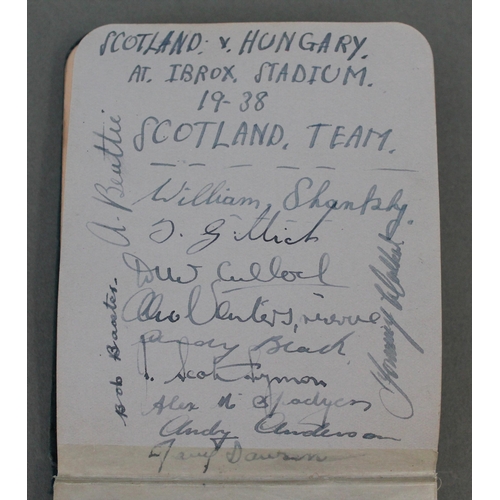 SCOTLAND. v. HUNGARY.
AT. IBROX. STADIUM.
19-38
SCOTLAND. TEAM.
A. Beattie
Bob Baxter.
William Shankly.
T. Gillick
D McCulloch
Alex Venters, reserve
Black
J. Scot Symon
Alex McSpadyen
Andy Anderson
Jerry Dawson
Tommy Walker